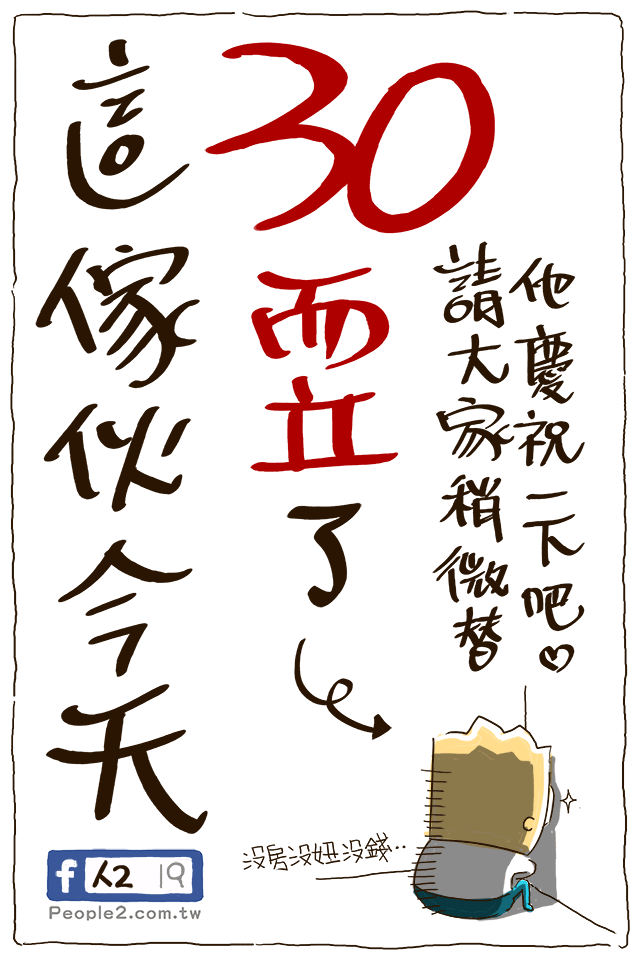 這傢伙今天
30
而立了
請大家稍微替
他慶祝一下吧♡
沒房沒妞沒錢…
f 人2 19
People2.com.tw